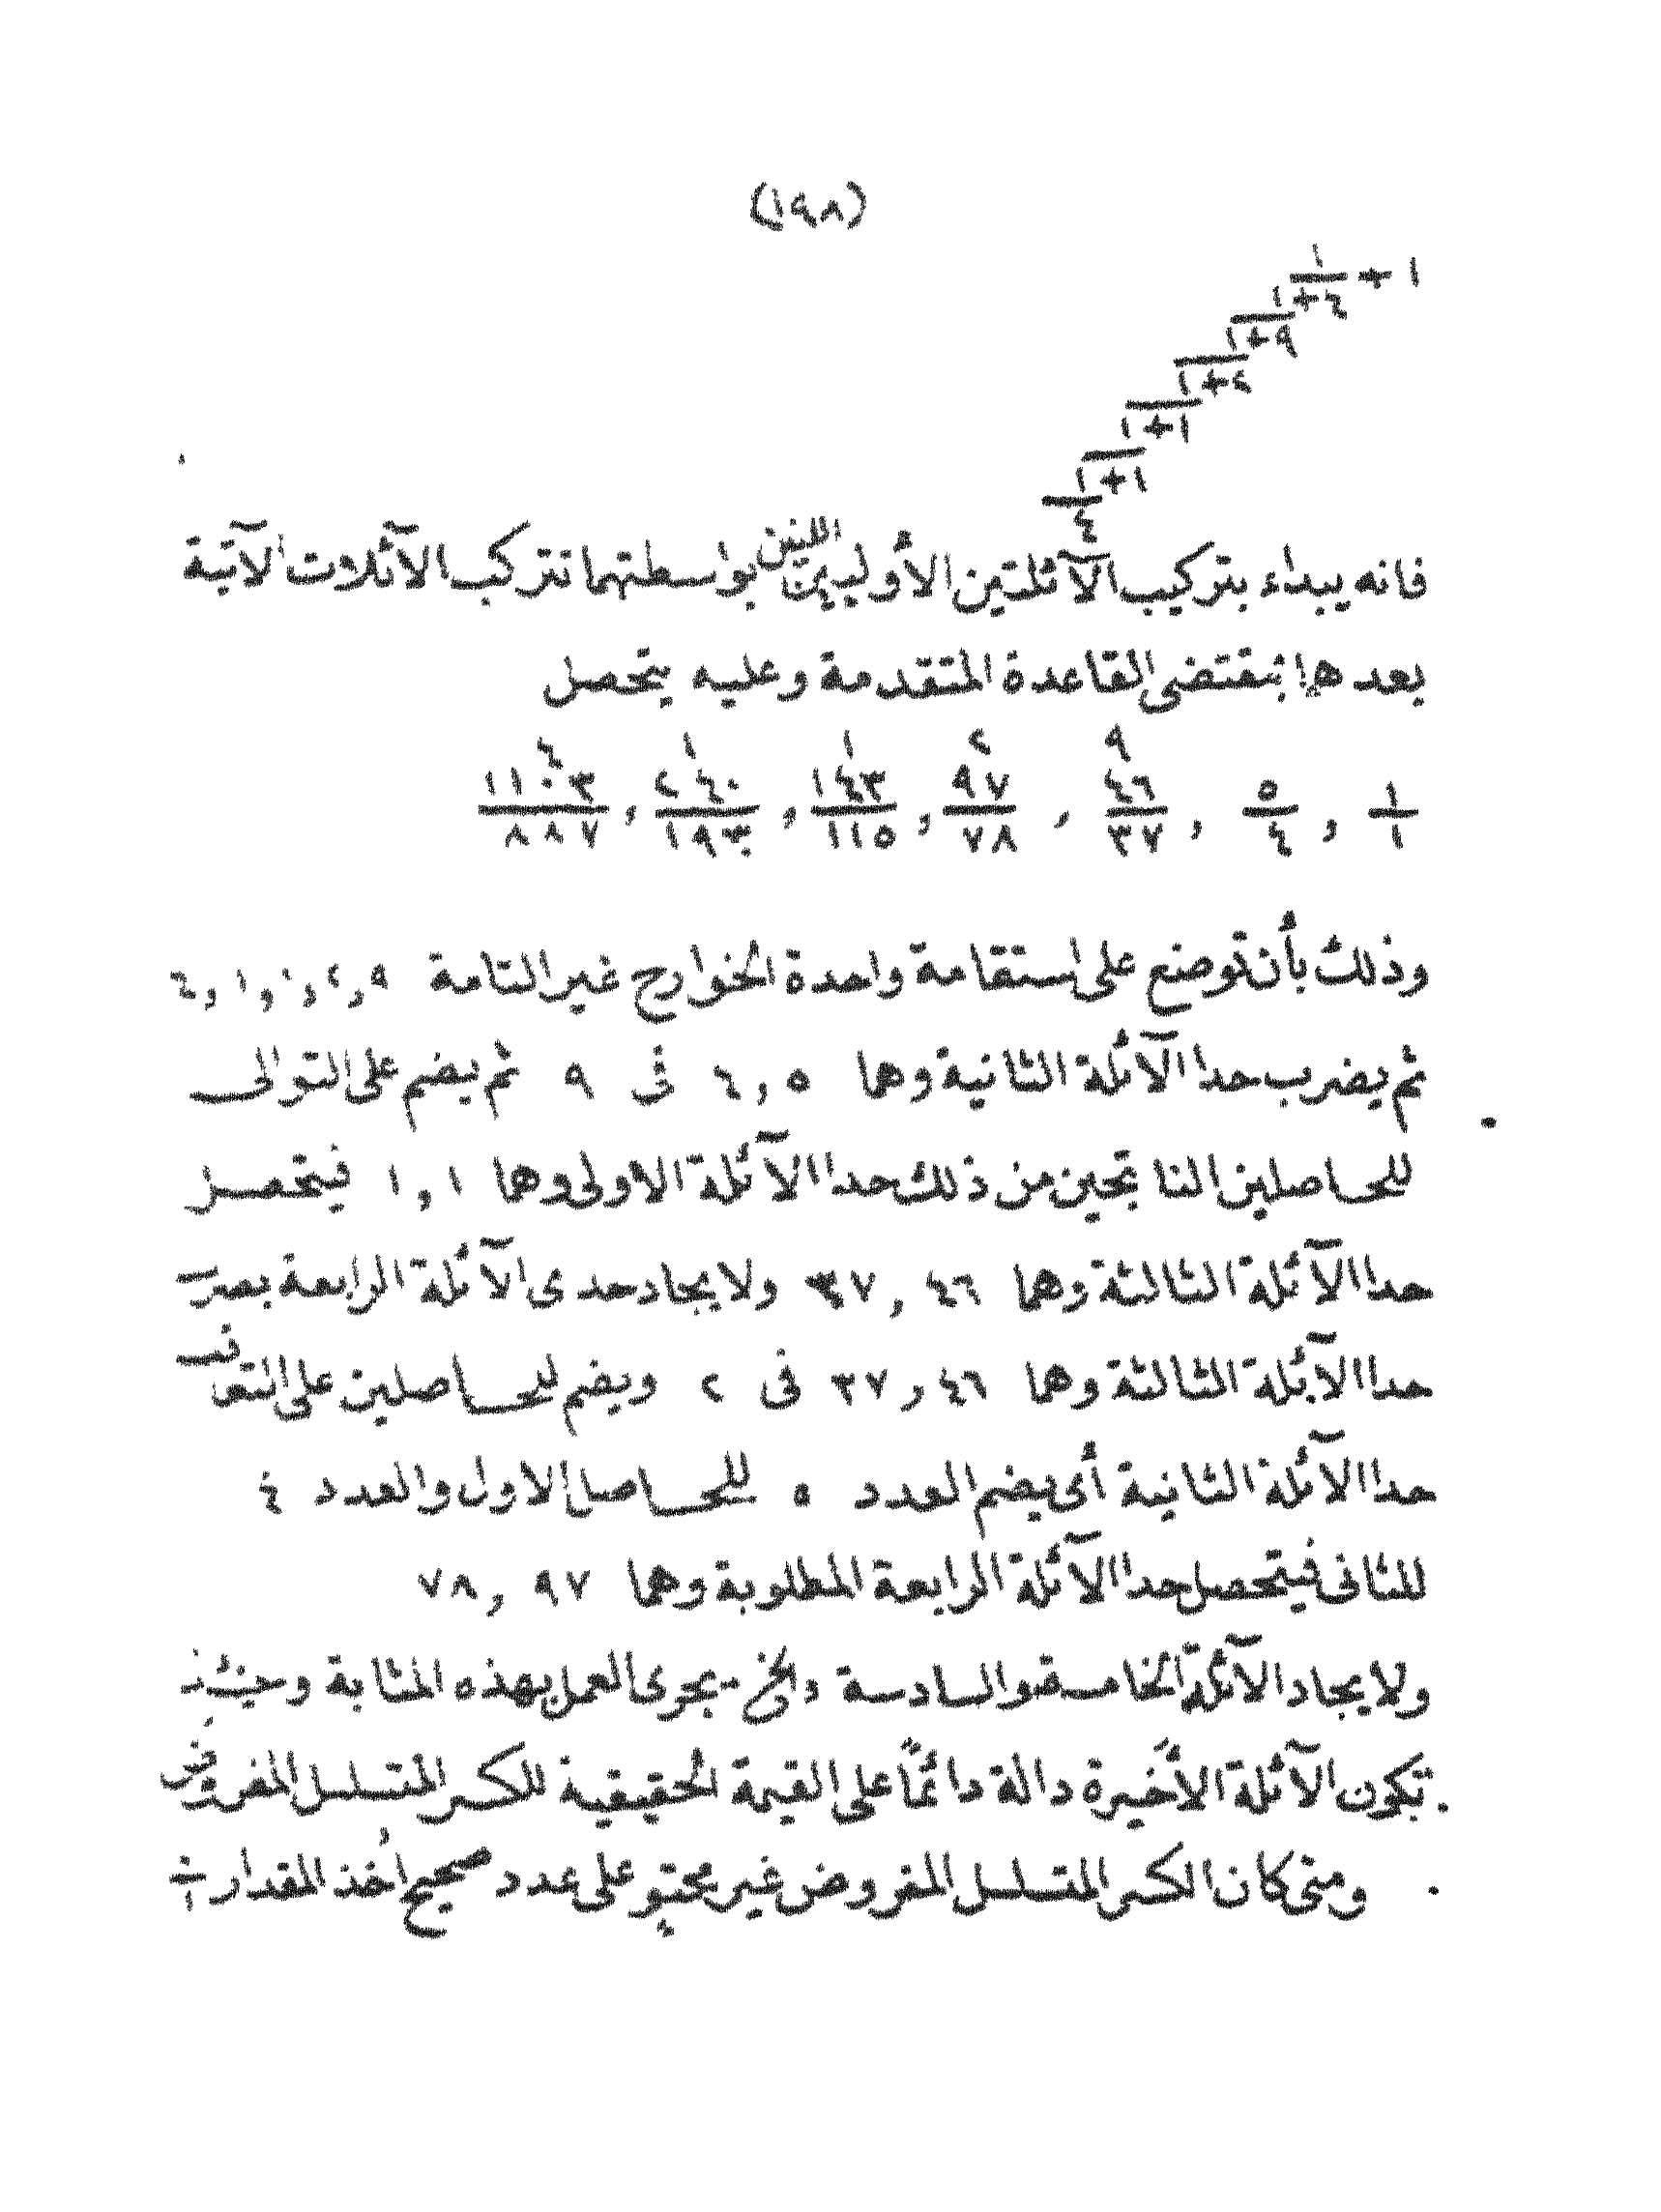 (١٩٨)
١ + ١
٤ + ١
٩ + ١
٢ + ١
١ + ١
١ + ١
٤
فانه يبداء بتركيب الآئلتين الأوليين اللتين بواسطتهما تتركب الآئلات الآتية
بعدها بمقتضى القاعدة المتقدمة وعليه يتحصل
٩ ٢ ١ ١ ٤
١ , ٥ , ٤٦ , ٩٧ , ١٤٣ , ٢٤٠ , ١١٠٣
١ ٤ ٣٧ ٧٨ ١١٥ ١٩٣ ٨٨٧
وذلك بأن توضع على استقامة واحدة الخوارج غير التامة ٩ , ٢ , ١ , ١ , ٤
ثم يضرب حدا الآئلة الثانية وهما ٥ , ٤ فى ٩ ثم يضم على التوالى
للحاصلين الناتجين من ذلك حدا الآئلة الاولى وهما ١ , ١ فيتحصل
حدا الآئلة الثالثة وهما ٤٦ , ٣٧ ولايجاد حدى الآئلة الرابعة يضرب
حدا الآئلة الثالثة وهما ٤٦ , ٣٧ فى ٢ ويضم للحاصلين على التعاقب
حدا الآئلة الثانية أى يضم العدد ٥ للحاصل الاول والعدد ٤
للثانى فيتحصل حدا الآئلة الرابعة المطلوبة وهما ٩٧ , ٧٨
ولايجاد الآئلة الخامسة والسادسة والخ يجرى العمل بهذه المثابة وحينئذ
تكون الآئلة الأخيرة دالة دائمًا على القيمة الحقيقية للكسر المتسلسل المفروض
ومتى كان الكسر المتسلسل المفروض غير محتو على عدد صحيح أخذ المقدار ÷